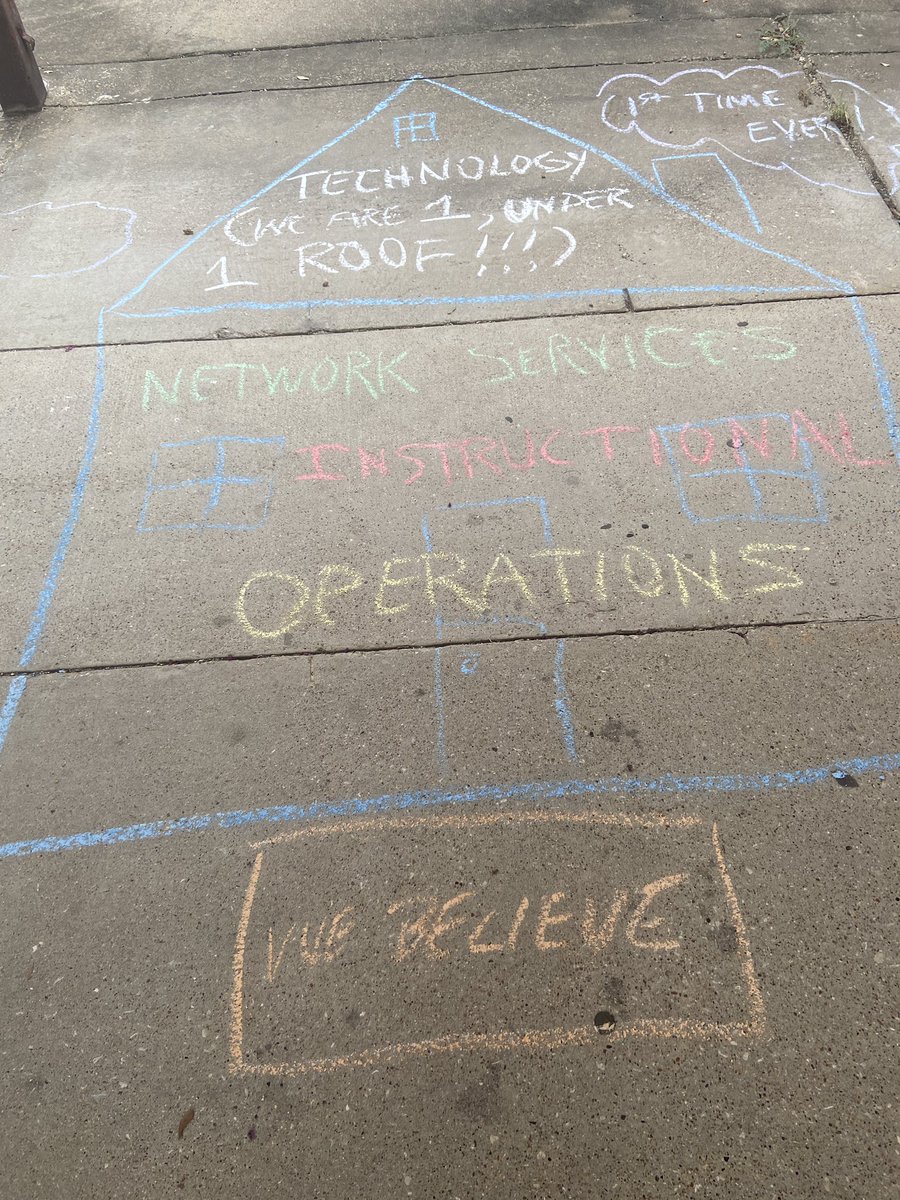 1ST TIME
EVER!
TECHNOLOGY
(WE ARE 1, UNDER
1 ROOF!!!)
NETWORK SERVICES
INSTRUCTIONAL
OPERATIONS
VUE BELIEVE